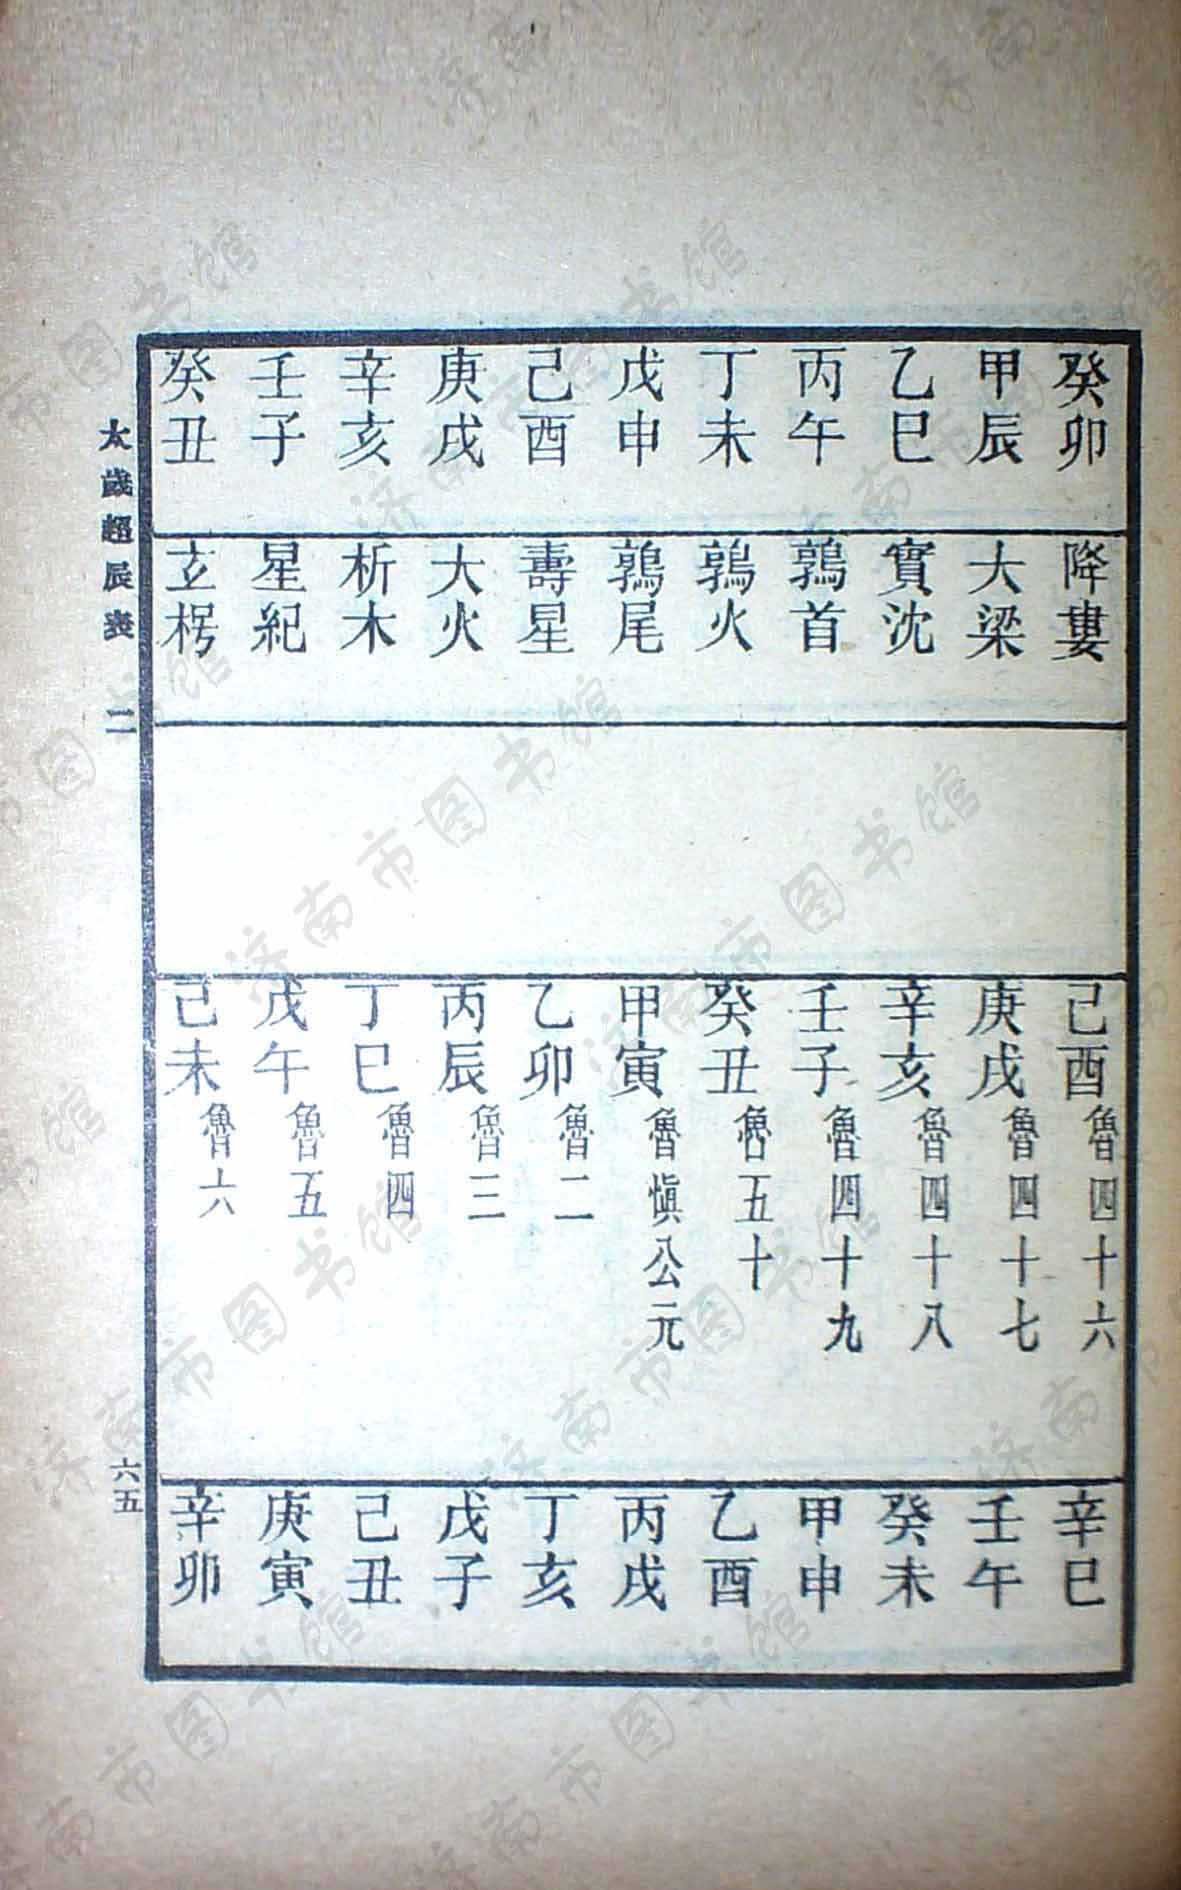 癸卯
甲辰
乙巳
丙午
丁未
戊申
己酉
庚戌
辛亥
壬子
癸丑
降婁
大梁
實沈
鶉首
鶉火
鶉尾
壽星
大火
析木
星紀
玄枵
己酉魯四十六
庚戌魯四十七
辛亥魯四十八
壬子魯四十九
癸丑魯五十
甲寅魯愼公元
乙卯魯二
丙辰魯三
丁巳魯四
戊午魯五
己未魯六
辛巳
壬午
癸未
甲申
乙酉
丙戌
丁亥
戊子
己丑
庚寅
辛卯
太歲超辰表 二
六五
济南市图书馆